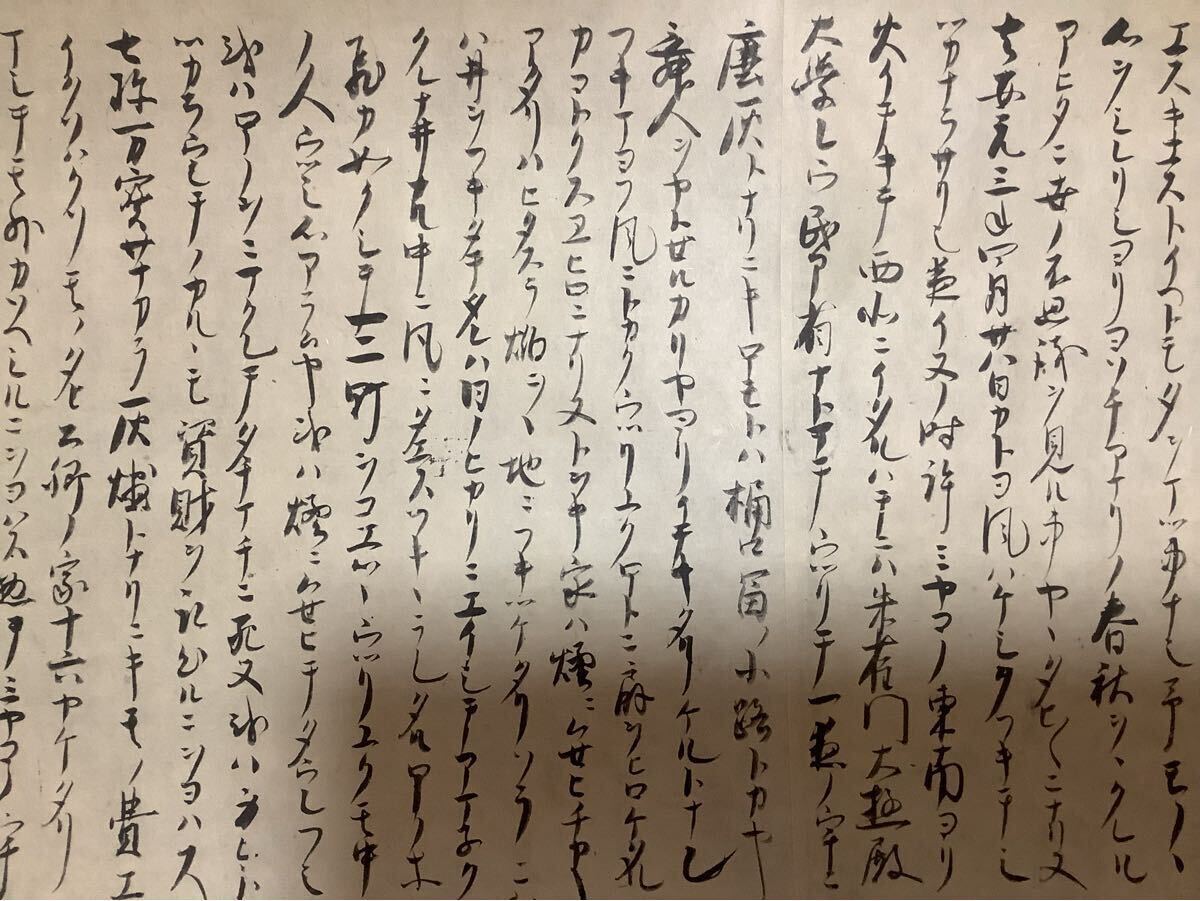 エスキエストイヘトモタシナツ事ナシ予モノヽ
心ヲシレリシヨリヨソチアマリノ春秋ヲヽクレル
アヒタニ世ノ不思議ヲ見ル事ヤヽタヒ〱ニナリヌ
去安元三年四月廿八日カトヨ風ハケシクフキテシ
ツカナラサリシ夜イヌノ時許ミヤコノ東南ヨリ
火イテキテ西北ニイタルハテニハ朱雀門大極殿
大学レウ民部省ナトマテウツリテ一夜ノウチニ
塵灰トナリニキホモトハ桶口冨ノ小路トカヤ
舞人ヲヤトセルカリヤヨリイテキタリケルトナム
フキマヨフ風ニトカクウツリユクホトニ扇ヲヒロケタル
カコトクスヱヒロニナリヌトヲキ家ハ煙ニムセヒチカキ
アタリハヒタスラ焔ヲヽ地ニフキツケタリソラニ
ハ井ヲフキタテタレハ日ノヒカリニエイシテアマネク
クレナ井ナル中ニ風ニタエスフキヽラレタルホノホ
飛カ如クシテ一二町ヲコエツヽウツリユク其中
ノ人ウツシ心アラムヤ或ハ煙ニムセヒテタウレフシ
或ハホノヲニマクレテタチマチニ死ヌ或ハ身ヒトツ
ツカラウシテノカルヽモ資財ヲ取出ルニヲヨハス
七珍万宝サナカラ灰燼トナリニキ其ノ費エ
イクソハクソ其ノタヒ公卿ノ家十六ヤケタリ
マシテ其外カソヘシルニヲヨハス惣テミヤコノウチ